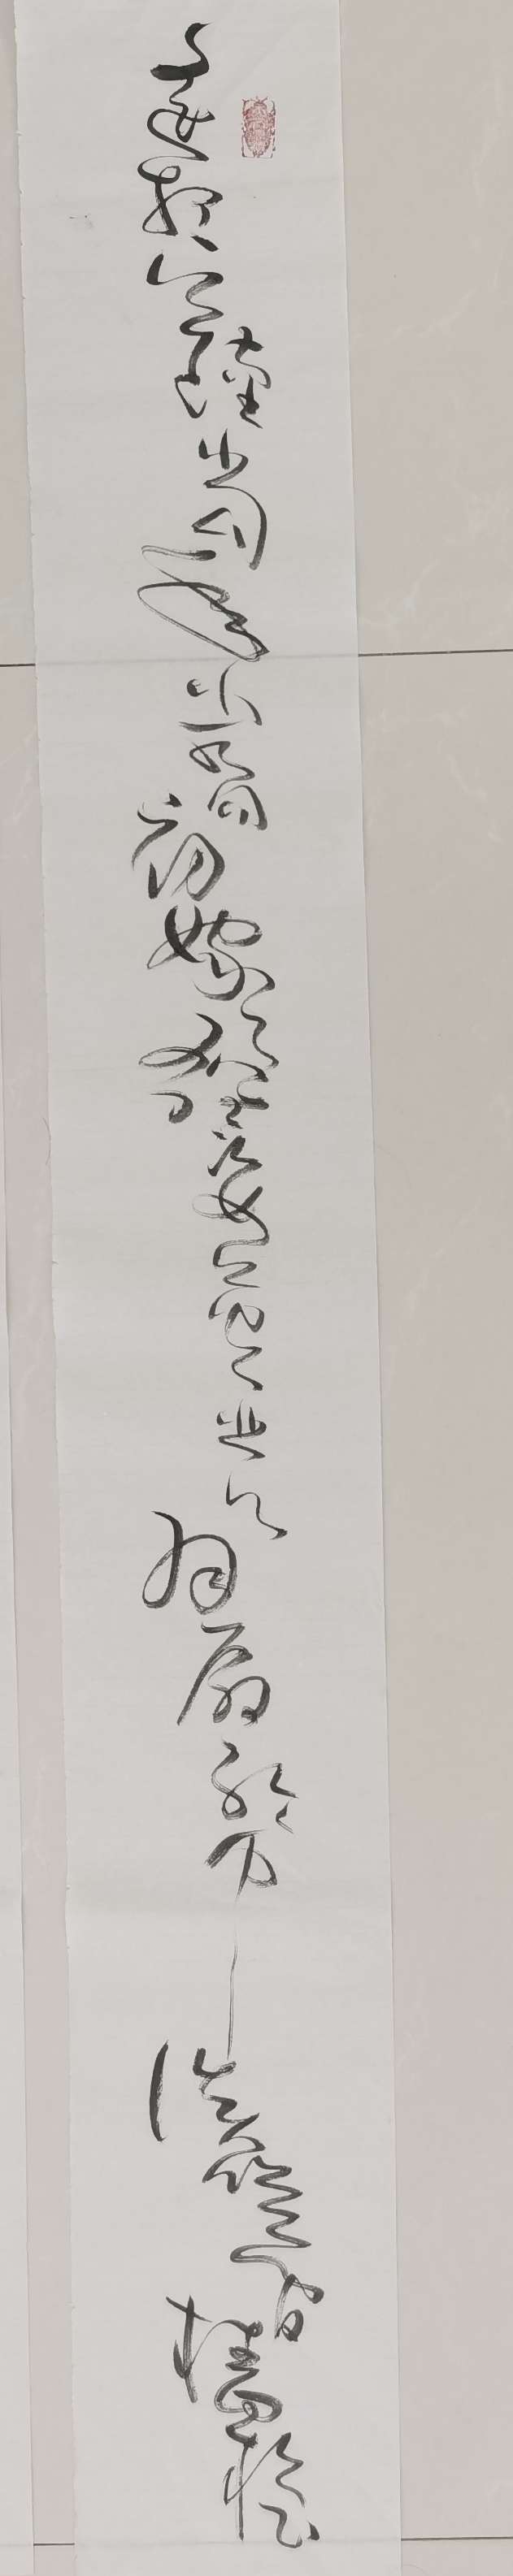 遥想公瑾当年小乔初嫁了雄姿英发羽扇纶巾谈笑间樯橹